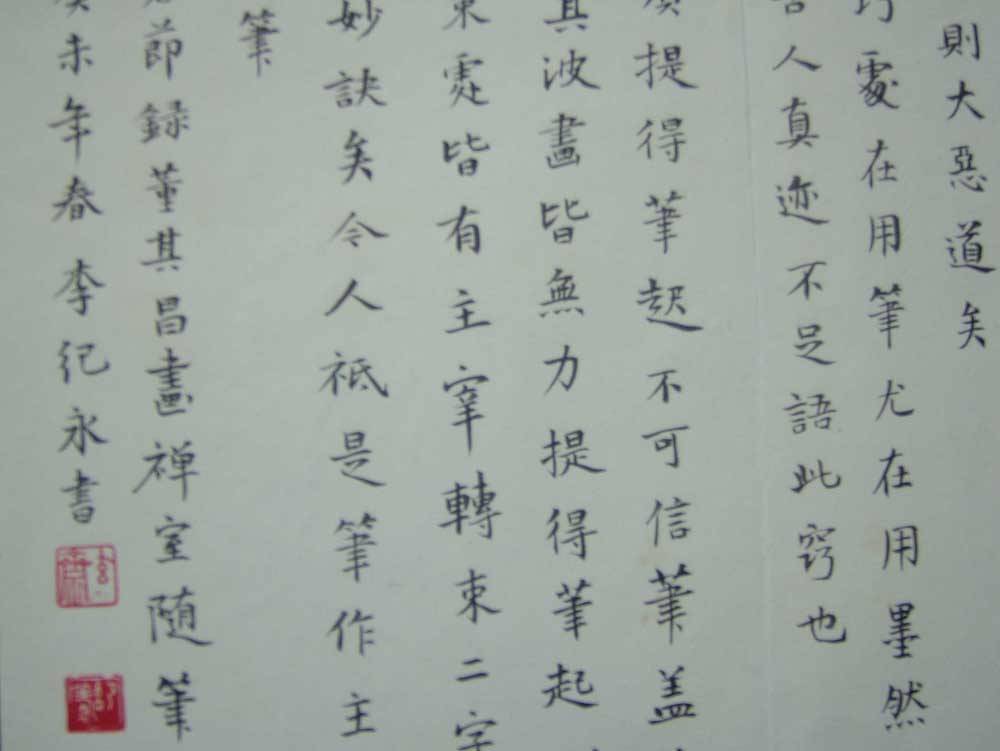 則大惡道矣
巧處在用筆尤在用墨然
古人真迹不足語此竅也
須提得筆起不可信筆盖
其波畫皆無力提得筆起
束處皆有主宰轉束二字
妙訣矣令人祇是筆作主
筆
節録董其昌畫禅室随筆
癸未年春李纪永書